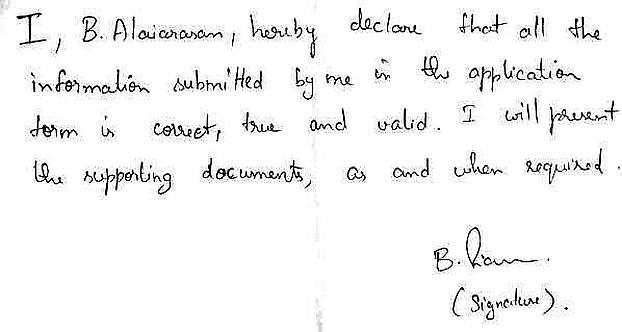 I, B. Alaiarasan, hereby declare that all the
information submitted by me in the application
form is correct, true and valid. I will present
the supporting documents, as and when required.
B.
(Signature).